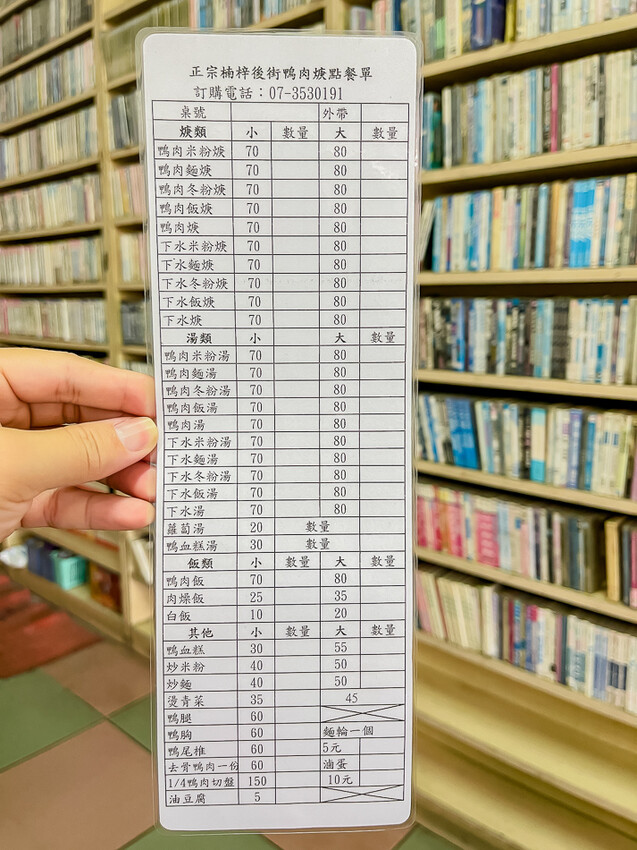 正宗楠梓後街鴨肉焿點餐單
訂購電話：07-3530191
桌號 外帶
焿類 小 數量 大 數量
鴨肉米粉焿 70 80
鴨肉麵焿 70 80
鴨肉冬粉焿 70 80
鴨肉飯焿 70 80
鴨肉焿 70 80
下水米粉焿 70 80
下水麵焿 70 80
下水冬粉焿 70 80
下水飯焿 70 80
下水焿 70 80
湯類 小 大 數量
鴨肉米粉湯 70 80
鴨肉麵湯 70 80
鴨肉冬粉湯 70 80
鴨肉飯湯 70 80
鴨肉湯 70 80
下水米粉湯 70 80
下水麵湯 70 80
下水冬粉湯 70 80
下水飯湯 70 80
下水湯 70 80
蘿蔔湯 20 數量
鴨血糕湯 30 數量
飯類 小 數量 大 數量
鴨肉飯 70 80
肉燥飯 25 35
白飯 10 20
其他 小 數量 大 數量
鴨血糕 30 55
炒米粉 40 50
炒麵 40 50
燙青菜 35 45
鴨腿 60
鴨胸 60 麵輪一個
鴨尾椎 60 5元
去骨鴨肉一份 60 滷蛋
1/4鴨肉切盤 150 10元
油豆腐 5